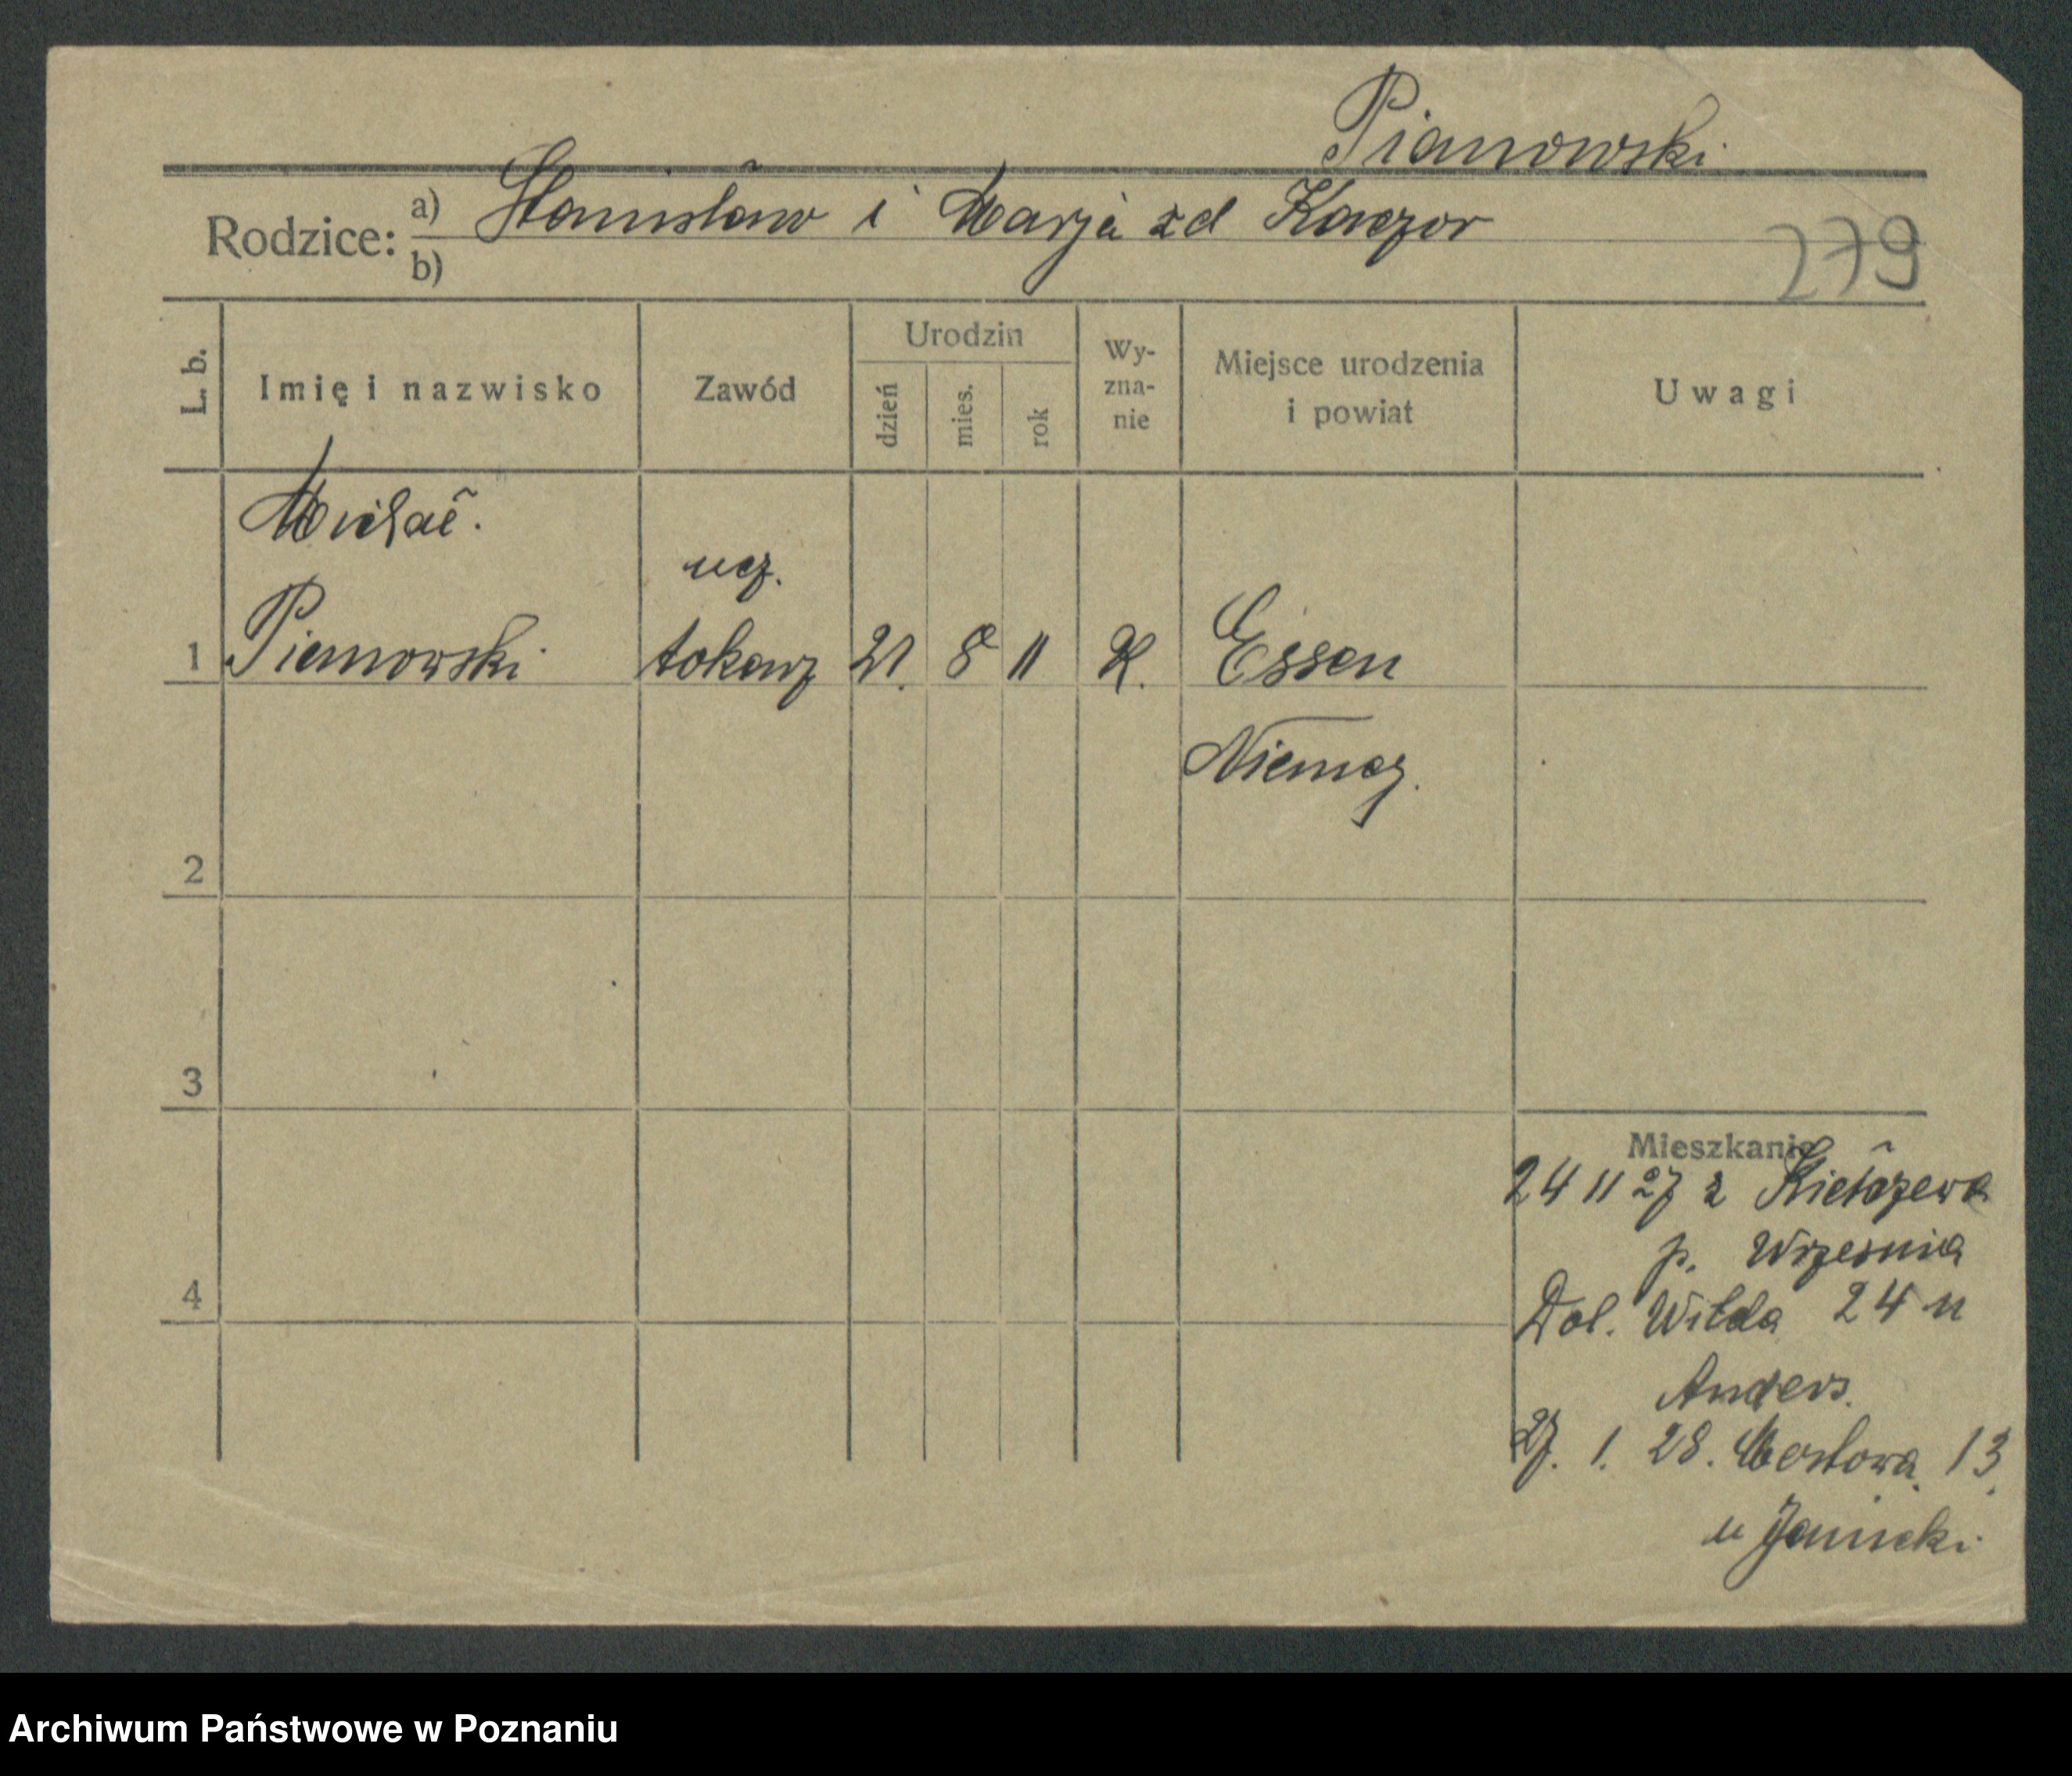 Pianowski
Rodzice: a) Stanisław i Marja zd Kaczor
b)
279
L. b. Imię i nazwisko Zawód Urodzin dzień mies. rok Wy-zna-nie Miejsce urodzenia i powiat Uwagi
Michał.
ucz.
1 Pianowski tokarz 21. 8 11 K. Essen
Niemcy.
2
3
Mieszkanie
24 11 27 z Kiełczewa
p. Wrzesnia
4
Dol. Wilda 24 u
Anders.
27. 1. 28. Mostowa 13.
u Janicki
Archiwum Państwowe w Poznaniu